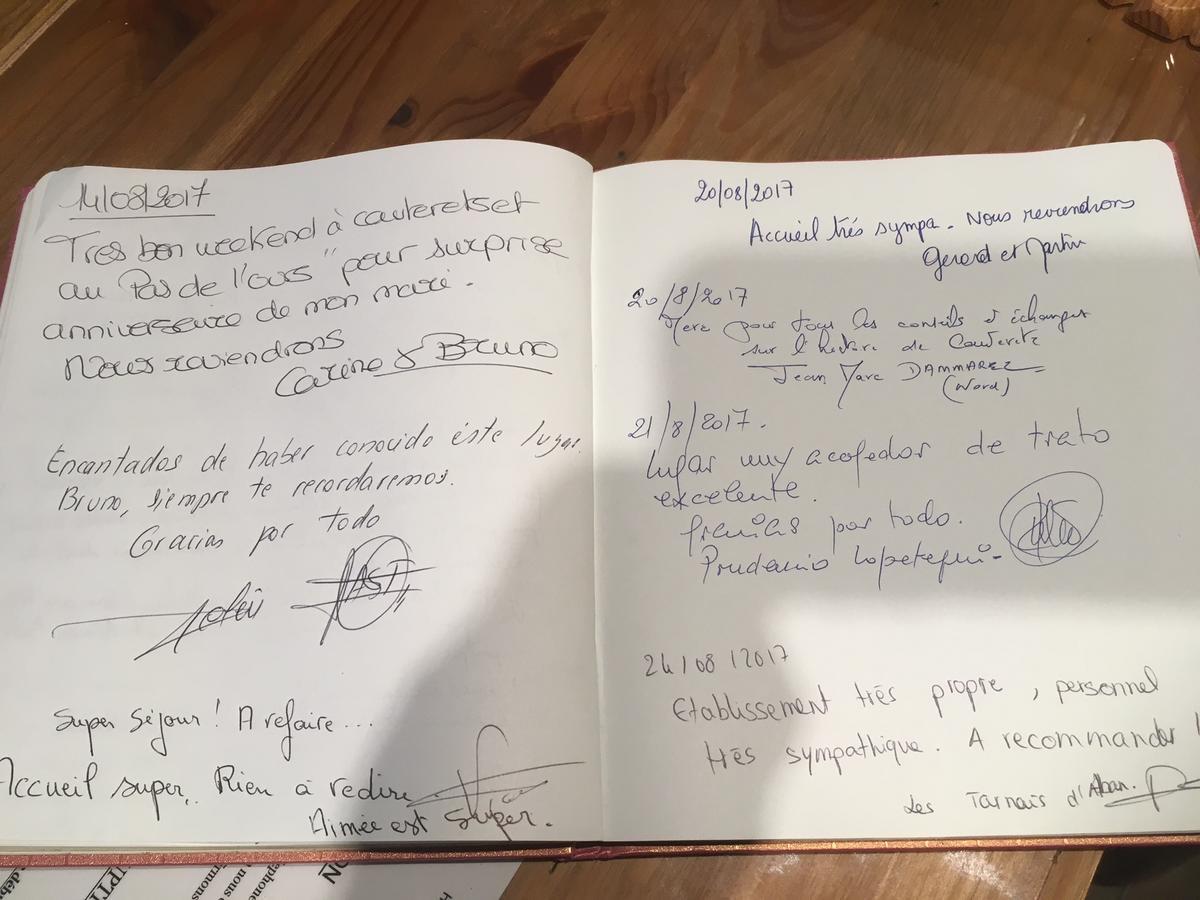 14/08/2017
Tres bon weekend à cauteretset
au Pas de l'ours" pour surprise
anniversaire de mon mari.
Nous reviendrons
Carine & Bruno
Encantados de haber conocido éste lugar.
Bruno, siempre te recordaremos.
Gracias por todo
Super séjour! A refaire...
Accueil super. Rien à redire
Aimée est super.
20/08/2017
Accueil très sympa. Nous reviendrons
Gerard et Martin
20/8/2017
Merci pour tous les conseils et échanges
sur l'histoire de Cauterets
Jean Marc DAMMAREZ
(Nord)
21/8/2017.
lugar muy acogedor de trato
excelente.
gracias por todo.
Prudencio Lopetegui-
24/08/2017
Etablissement très propre, personnel
très sympathique. A recommander !
Les Tarnais d'Alban.